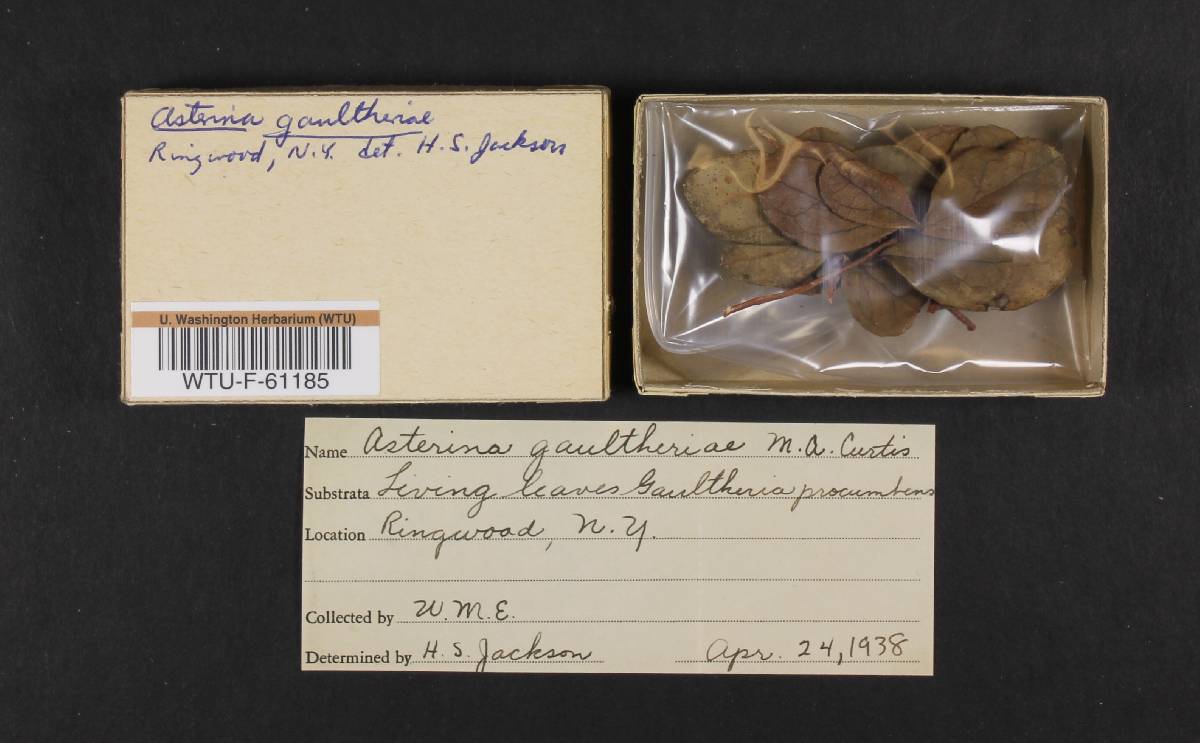 Asterina gaultheriae
Ringwood, N.Y. det. H.S. Jackson
U. Washington Herbarium (WTU)
WTU-F-61185
Name Asterina gaultheriae M.A. Curtis
Substrata Living leaves Gaultheria procumbens
Location Ringwood, N.Y.
Collected by W.M.E.
Determined by H.S. Jackson Apr. 24, 1938